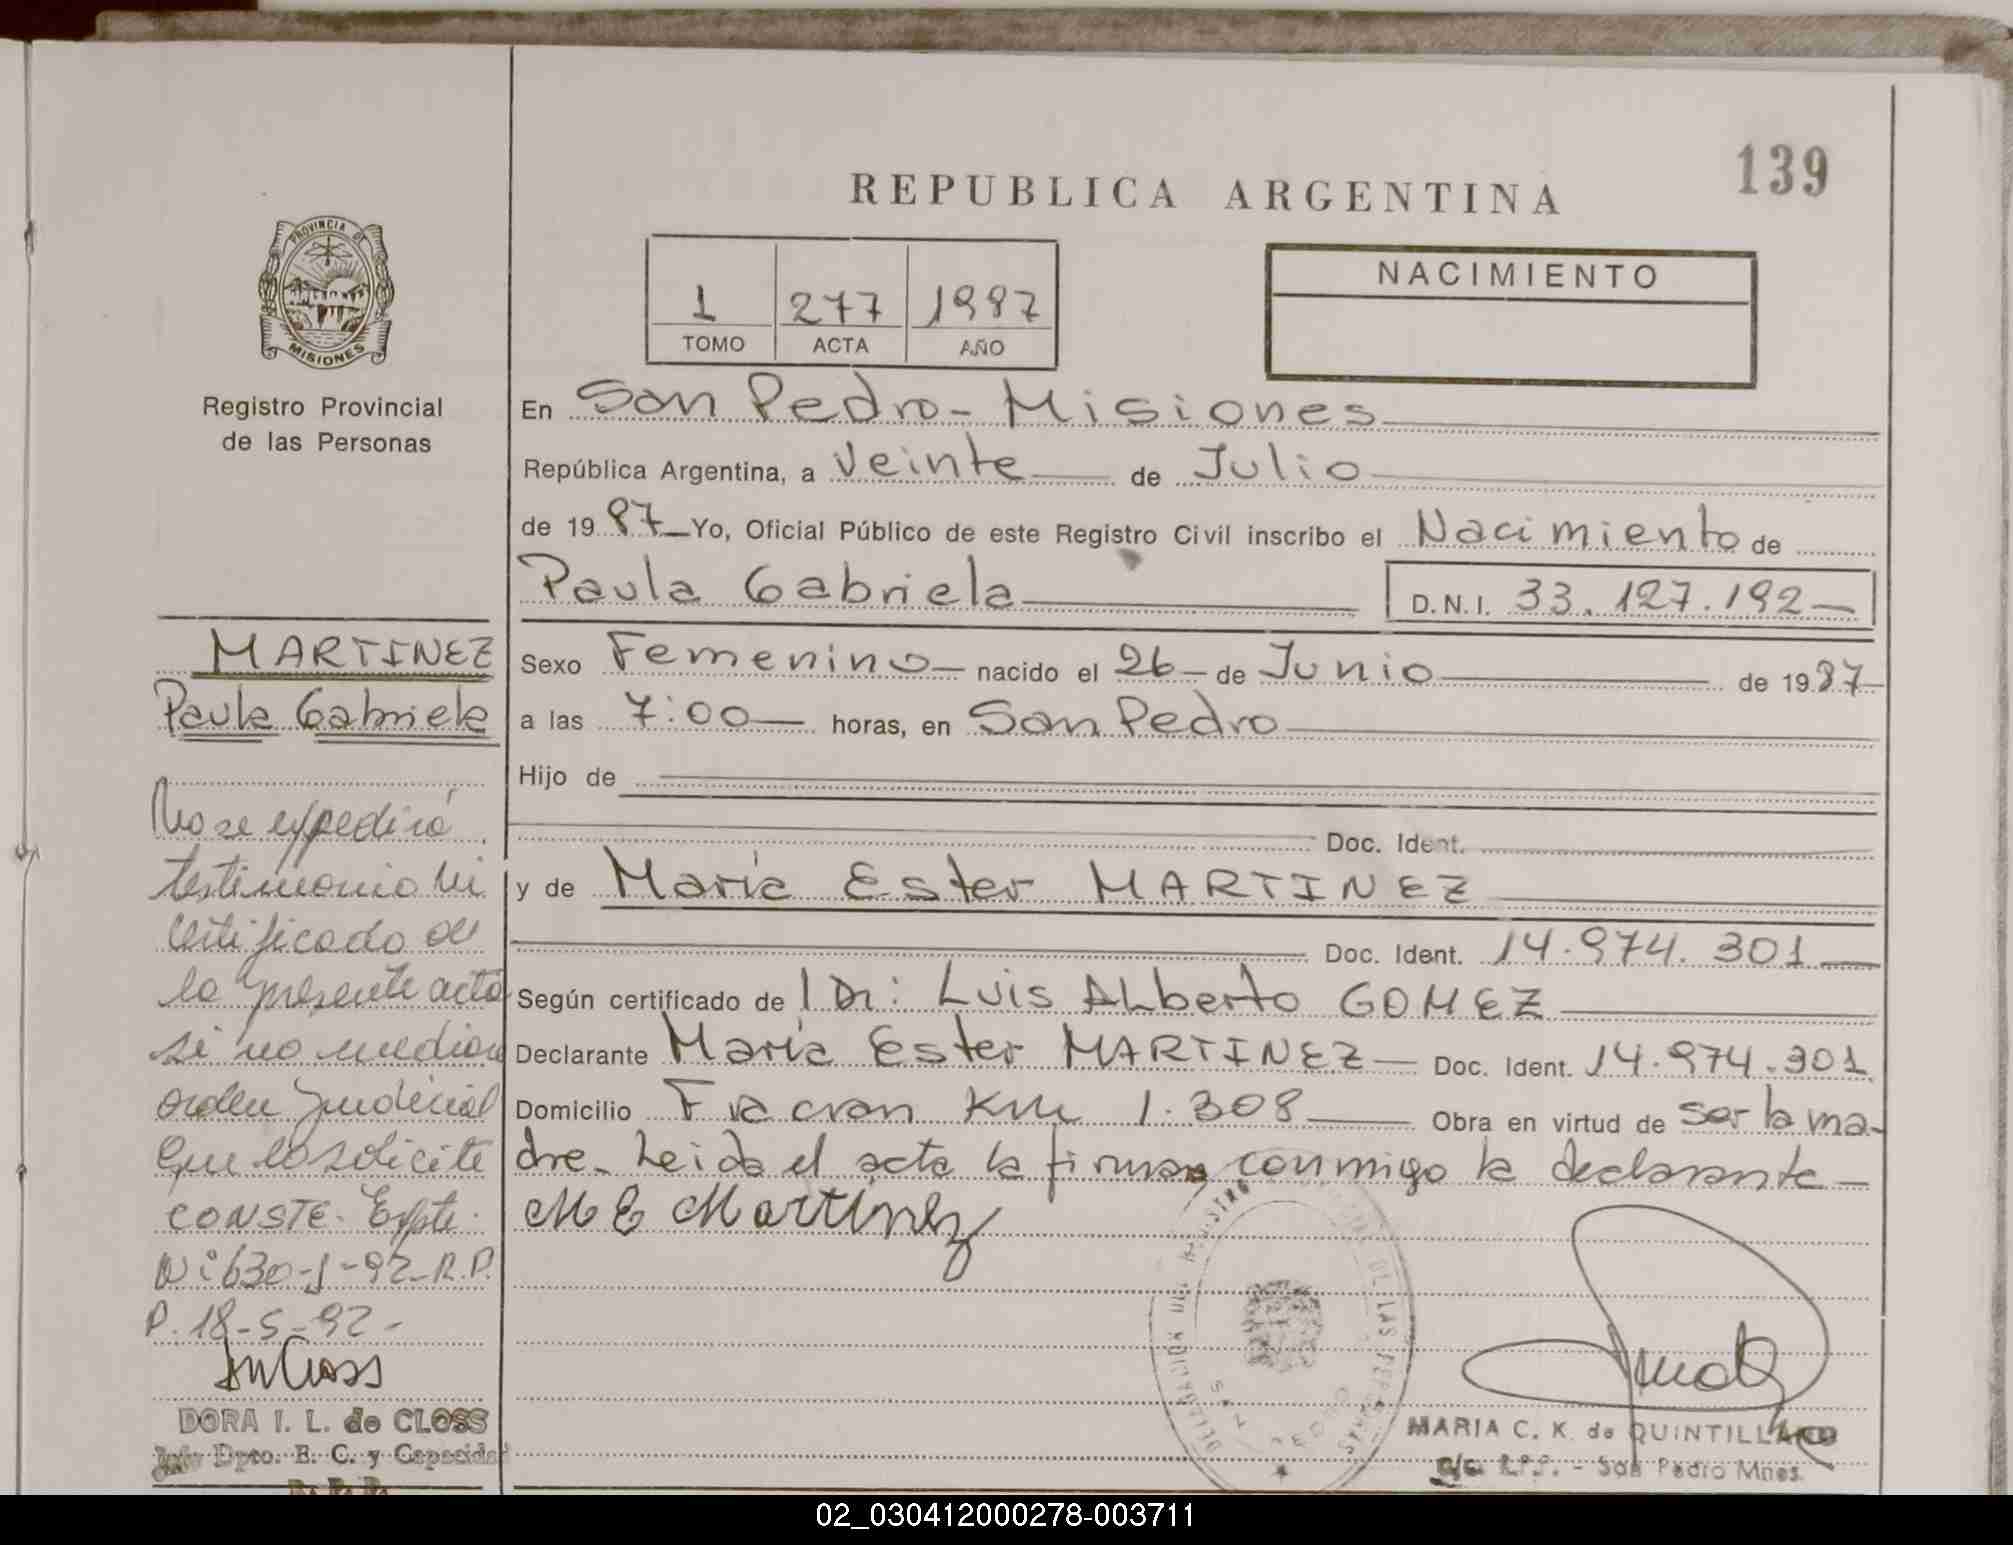 139
REPUBLICA ARGENTINA
PROVINCIA DE
MISIONES
Registro Provincial
de las Personas
1 277 1987
TOMO ACTA AÑO
NACIMIENTO
En San Pedro - Misiones
República Argentina, a Veinte de Julio
de 19 87 Yo, Oficial Público de este Registro Civil inscribo el Nacimiento de
Paula Gabriela D.N.I. 33.127.192
Sexo Femenino nacido el 26 de Junio de 19 87
a las 7:00 horas, en San Pedro
Hijo de
Doc. Ident.
y de María Ester MARTINEZ
Doc. Ident. 14.974.301
Según certificado de l Dr: Luis ALberto GOMEZ
Declarante María Ester MARTINEZ Doc. Ident. 14.974.301
Domicilio Fracran Km 1.308 Obra en virtud de ser la ma-
dre. Leida el acta la firma conmigo la declarante
M E Martínez
MARTINEZ
Paula Gabriela
No se expedirá
testimonio ni
certificado de
la presente acta
si no media
orden judicial
que lo solicite
CONSTE. Expte.
Nº 630-J-92-R.P.
P. 18-5-92-
DORA I. L. de CLOSS
Jefe Dpto. E. C. y Capacidad
R. P. P.
DE LAS PERSONAS
SAN PEDRO
MARIA C. K. de QUINTILLA
a/c. R.P.P. - San Pedro Mnes.
02_030412000278-003711